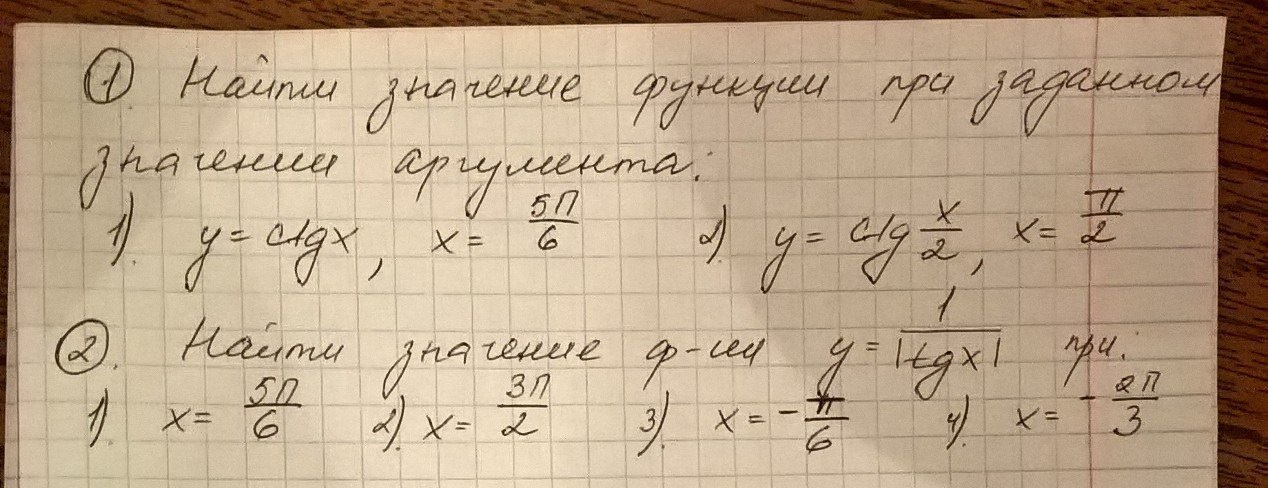 1. Найти значение функции при заданном
значении аргумента:
1). y = ctgx, x = 5П/6 2). y = ctg x/2, x = П/2
2. Найти значение ф-ии y = 1/|tgx| при:
1). x = 5П/6 2). x = 3П/2 3). x = -П/6 4). x = -2П/3